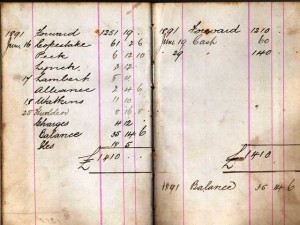 1891 Forward 1251 19
June 16 Copestake 61 2 6
Peek 6 12 10
Lynch 3 12
17 Lambert 5 11
Alliance 2 4 6
18 Watkins 11 10
25
Charges 4 12
Balance 35 14 6
Dis 18 5
£ 1410
1891 Forward 1210
June 19 Cash 60
29 140
£ 1410
1891 Balance 35 14 6